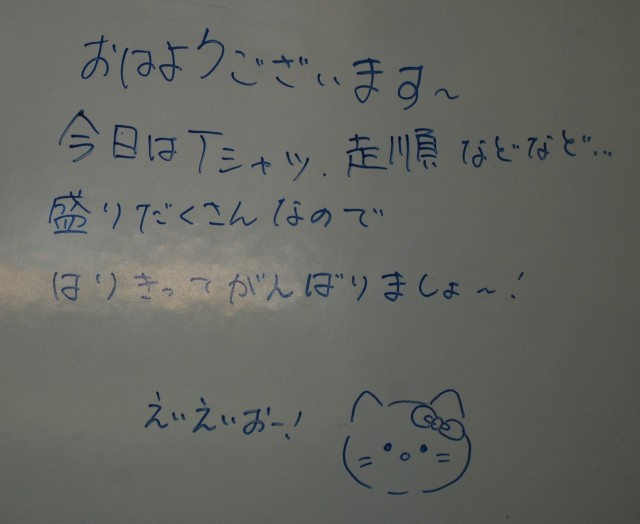 おはようございます~
今日はTシャツ、走順などなど…
盛りだくさんなので
はりきってがんばりましょ~!
えいえいおー!